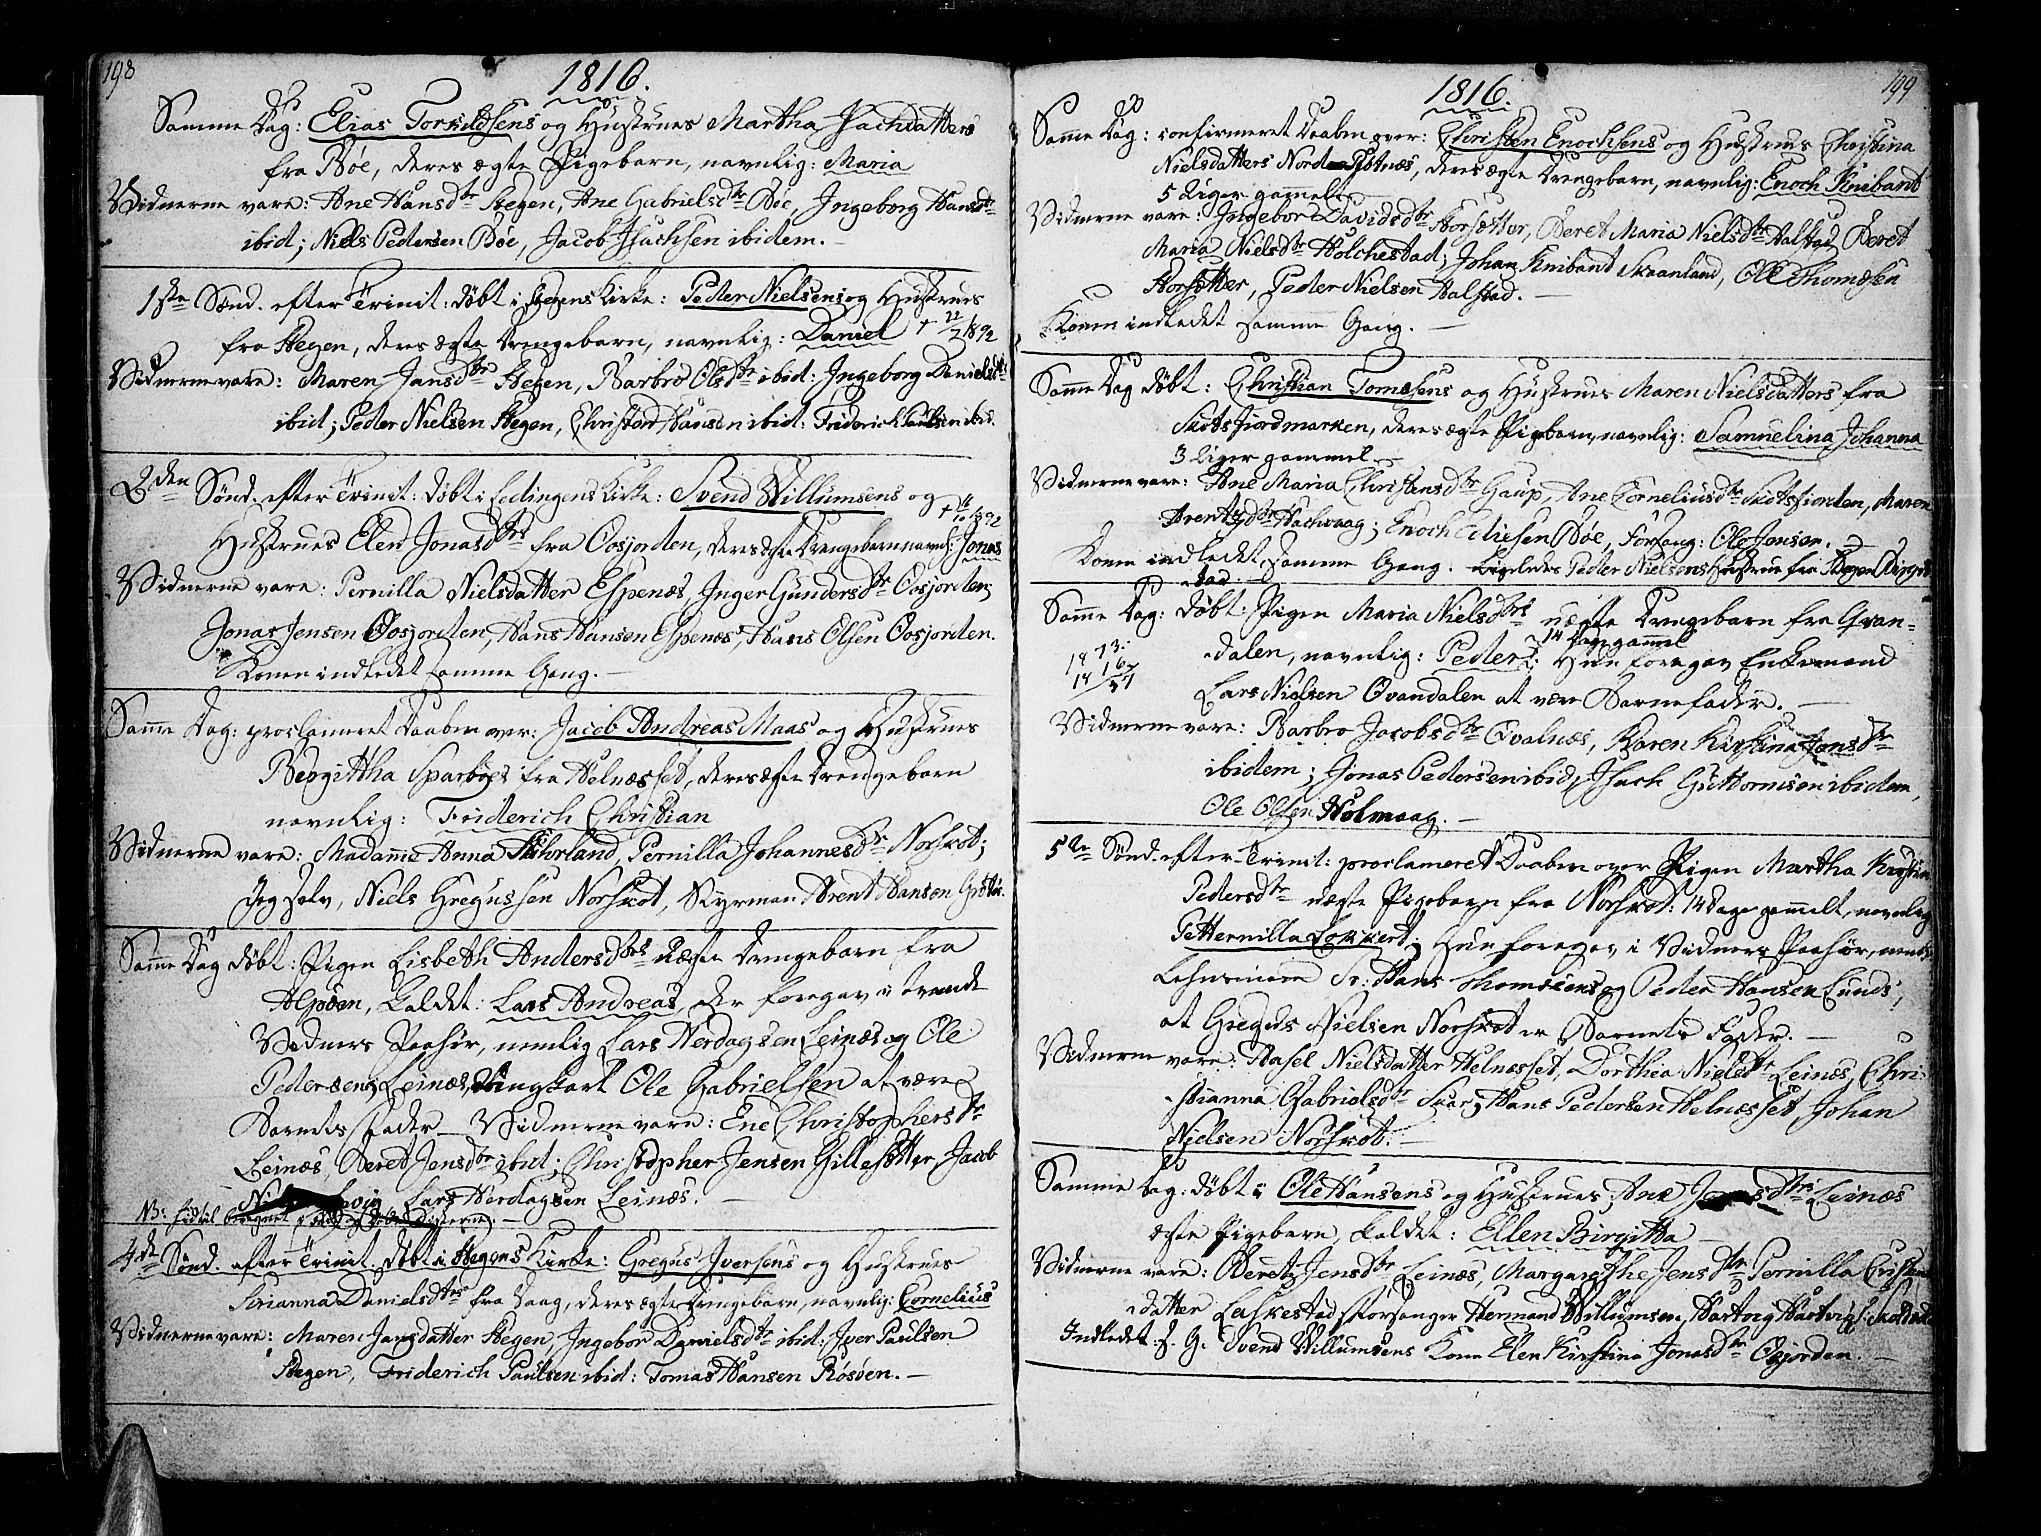 198
1816.
Samme Dag: Elias Torkildsens og Hustrues Martha Isachdatters
fra Bøe, deres ægte Pigebarn, navnlig: Maria
Vidnerne vare: Ane Hansdtr Stegen, Ane Gabrielsdtr Bøe, Ingeborg Hansdtr
ibid; Niels Pedersen Bøe, Jacob Isachsen ibidem.
1ste Sønd. efter Trinit: døbt i Stegens Kirke: Peder Nielsens og Hustrues
fra Stegen, deres ægte Drengebarn, navnlig: Daniel + 22/7 1892
Vidnerne vare: Maren Jansdtr Stegen, Barbro Olsdtr ibid: Ingeborg Danielsdtr
ibid; Peder Nielsen Stegen, Christian Hansen ibid: Friderich Paulsen ibid.
2den Sønd. efter Trinit: døbt i Ledingens Kirke: Svend Willumsens og
Hustrues Elen Jonasdtrs fra Oosjorden, deres ægte Drengebarn navnl: Jonas
Vidnerne vare: Pernilla Nielsdatter Espenæs, Inger Gundersdtr Oosjorden;
Jonas Jensen Oosjorden, Hans Hansen Espenæs, Hans Olsen Oosjorden.
Konen indledet samme Gang.
Samme Dag: proclameret Daaben over: Jacob Andreas Maas og Hustrues
Bergittha Sparboes fra Helnæsset, deres ægte Drengebarn
navnlig: Friderich Christian
Vidnerne vare: Madamme Anna Schrland, Pernilla Johannesdtr Norskot;
Jeg selv, Niels Gregussen Norskot, Styrman Arent Hansen
Samme Dag døbt: Pigen Lisbeth Andersdtrs uægte Drengebarn fra
Alpøen, kaldet: Lars Andreas, der foregav i tvende
Vidners Paahør, nemlig Lars Nerdagsen Leinæs og Ole
Pedersen Leinæs, Ungkarl Ole Gabrielsen at være
Barnets Fader – Vidnerne vare: Ene Christophersdtr
Leinæs, Beret Jensdtr ibid; Christopher Jensen Gillesætter, Jacob
Lars Nerdagsen Leinæs.
4de Sønd. efter Trinit. døbt i Stegens Kirke: Gregus Iversens og Hustrues
Sirianna Danielsdtrs fra Vaag, deres ægte Drengebarn, navnlig: Cornelius
Vidnerne vare: Maren Jansdatter Stegen, Ingebor Danielsdtr ibid: Iver Paulsen
Stegen, Friderich Paulsen ibid: Tomas Hansen Røsøen.
199
1816.
Samme Dag: confirmeret Daaben over: Christen Enochsens og Hustrues Christina
Nielsdatters Nord deres ægte Drengebarn, navnlig: Enoch Knibant
5 Uger gammelt
Vidnerne vare: Ingebor Davidsdtr Horsætter, Beret Maria Nielsdtr Halstad, Beret
Maria Nielsdtr Holchestad; Johan Knibant Skaanland, Ole Thomesen
Horsætter, Peder Nielsen Halstad.
Konen indledet samme Gang.
Samme Dag døbt: Christian Tomesens og Hustrues Maren Nielsdatters fra
Skotsfiordmarken, deres ægte Pigebarn, navnlig: Samuelina Johanna
3 Uger gammel
Vidnerne vare: Ane Maria Christensdtr Gaup, Ane Corneliusdtr Skotsfiorden, Maren
Arentzdtr Enoch Eliesen Bøe, Forsang: Ole Jensen.
Konen indledet samme Gang. Ligeledes Peder Nielsens Hustrue fra Stegen
Samme Dag: døbt: Pigen Maria Nielsdtrs uægte Drengebarn fra Qvan-
dalen, navnlig: Peder 14 Dage gammel: Hun foregav Enkemand
1873:
1816
Lars Nielsen Qvandalen at være Barnefader.
Vidnerne vare: Barbro Jacobsdtr Qvalnæs, Karen Kirstina Jonsdtr
ibidem; Jonas Pedersen ibid, Isach Guttormsen ibidem,
Ole Olsen Holmaag.
5te Sønd. efter Trinit: proclameret Daaben over Pigen Martha Kirstina
Pedersdtr uægte Pigebarn fra Norskot: 14 Dage gammelt, navnlig
Petternilla Lokkert; Hun foregav i Vidners Paahør, nemlig
Lehnsmann Sr: Hans Thomesens og Peder Hansen Lunds,
at Gregus Nielsen Norskot er Barnets Fader.
Vidnerne vare: Rasel Nielsdatter Helnæsset, Dorthea Nielsdtr Leinæs, Chri-
stianna Gabrielsdtr Skaar; Hans Pedersen Helnæsset, Johan
Nielsen Norskot.
Samme Dag: døbt: Ole Hansens og Hustrues Ane Leinæs
ægte Pigebarn, kaldet: Ellen Birgitta
Vidnerne vare: Beret Jensdtr Leinæs, Margarethe Jensdtr Pernilla
datter Laskestad, Korsanger Hermand Willumsen, Hartvig
Indledet s. G. Svend Willumsens Kone Elen Kirstina Jonasdtr Osjorden.